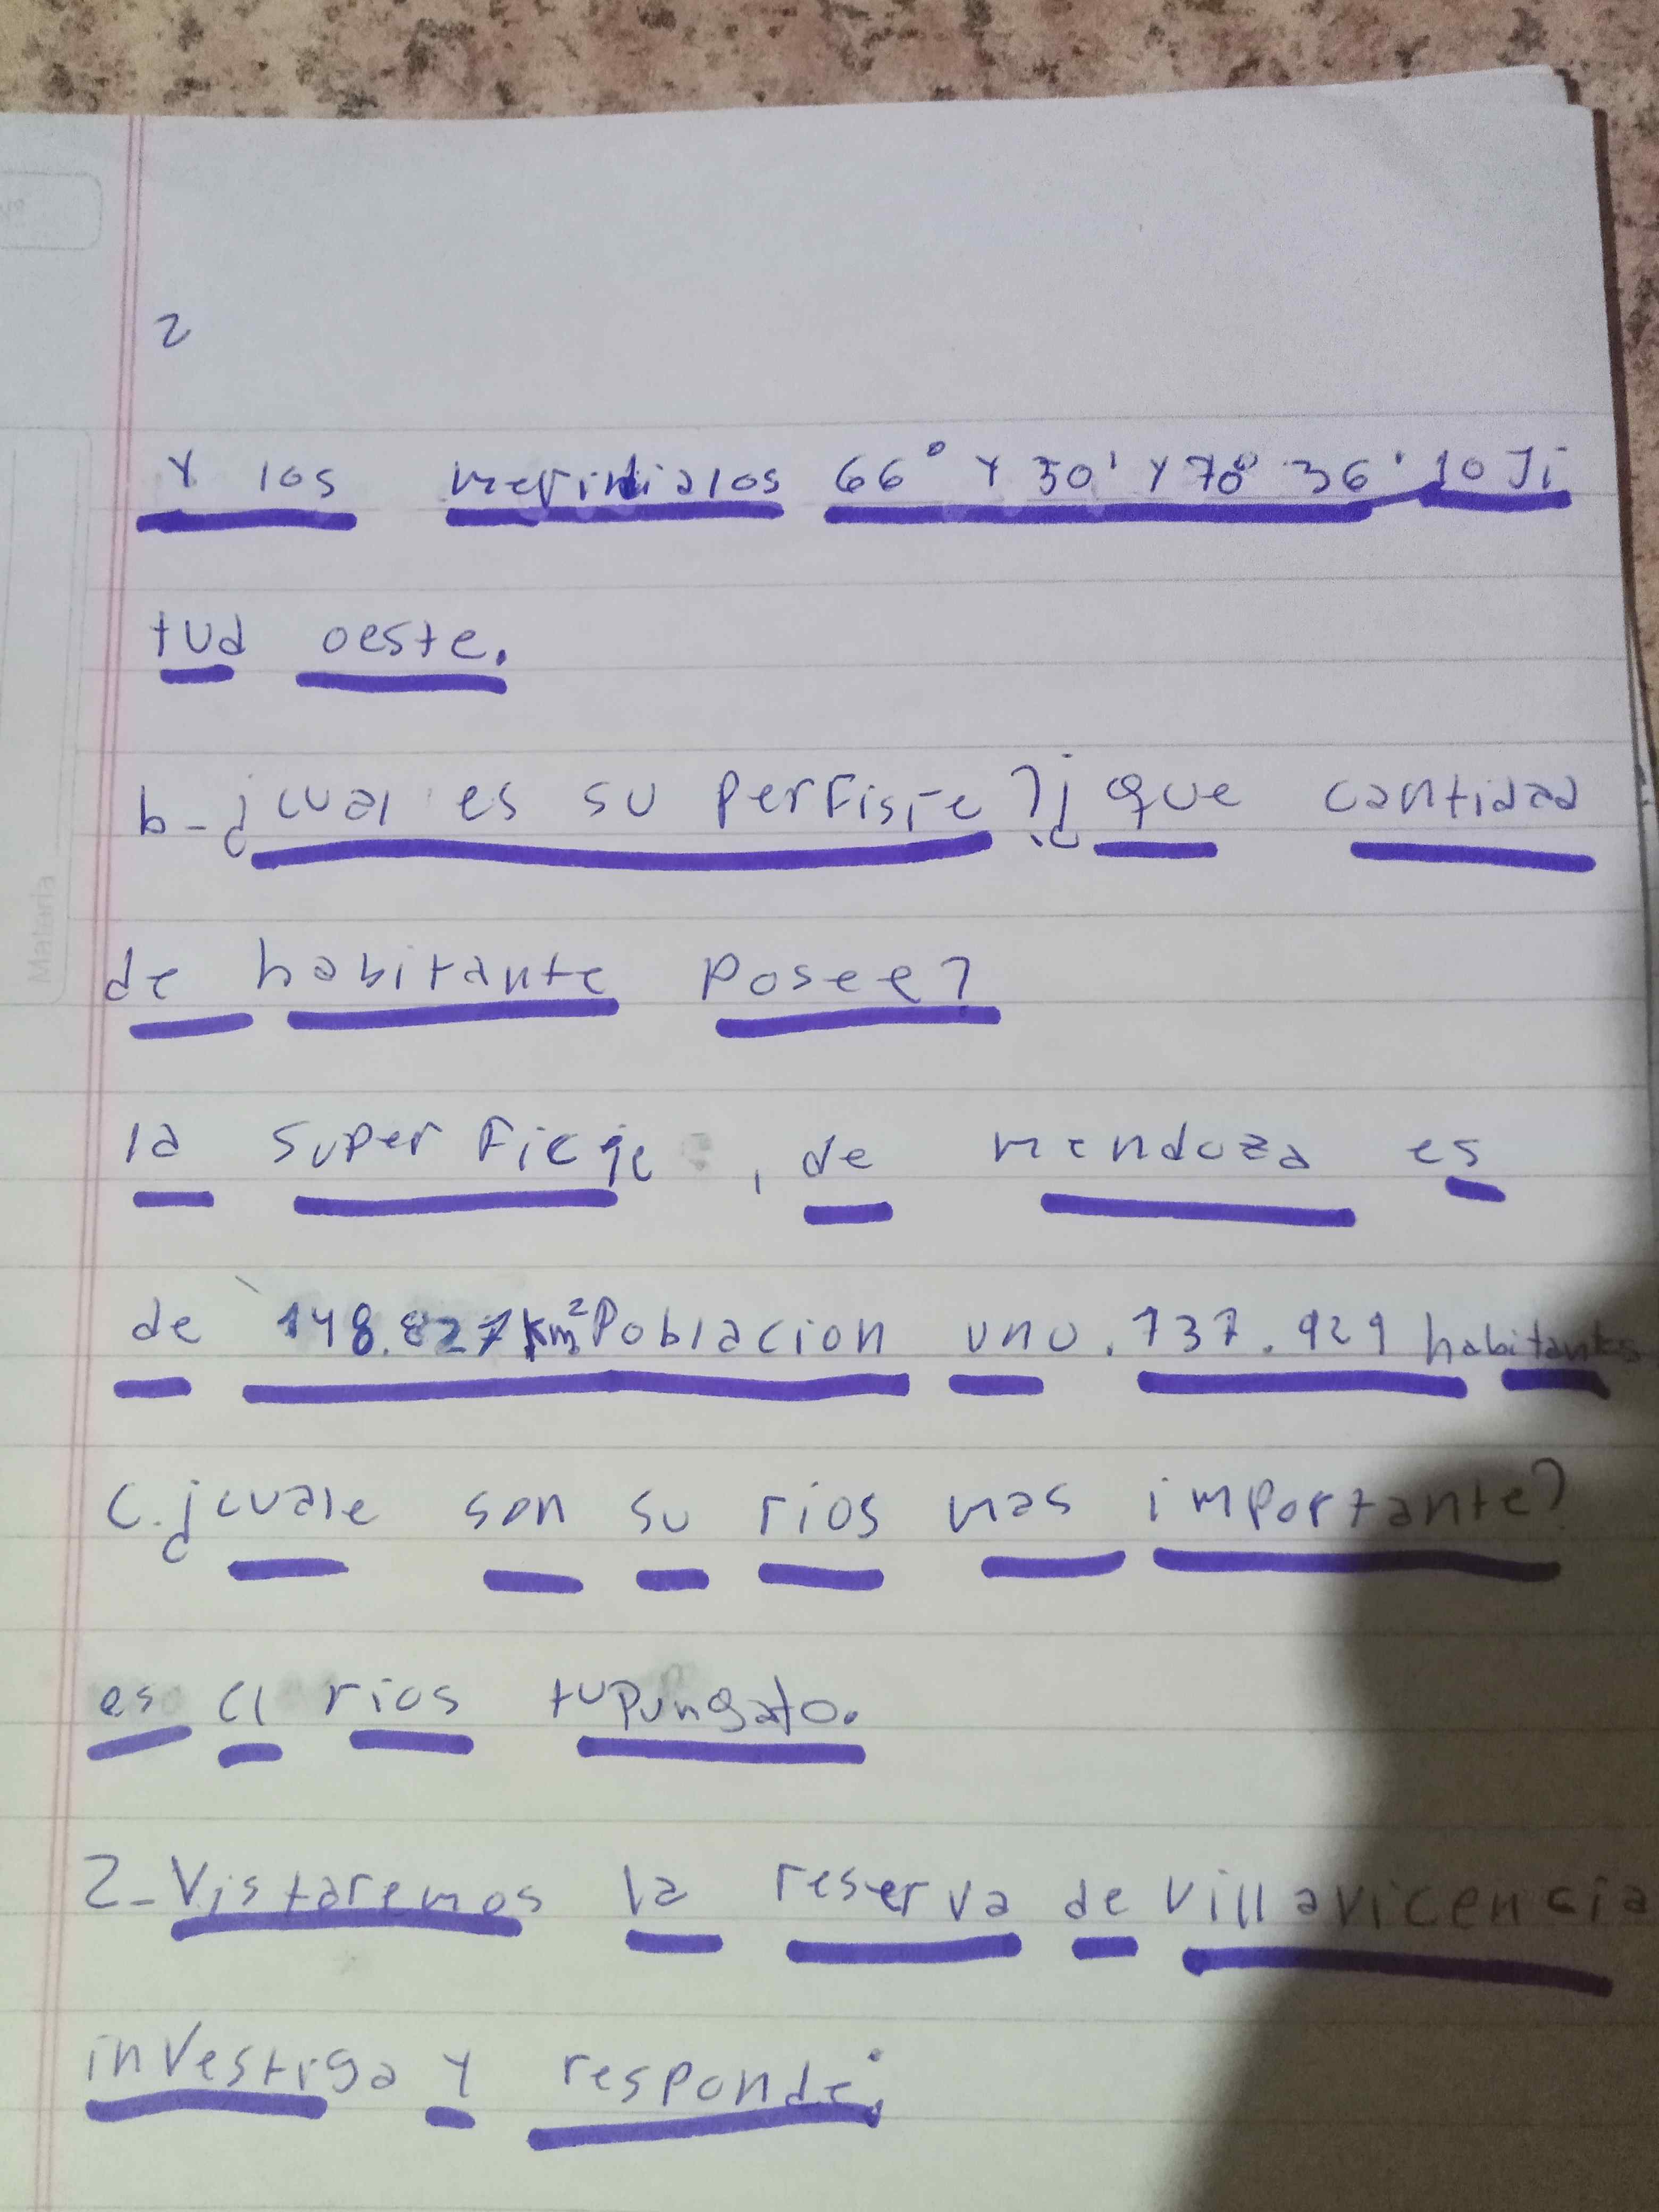 2
y los meridialos 66° y 30' y 70° 36' lo Ji
tud oeste.
b-¿cual es su perfisie?¿que cantidad
de habitante posee?
la super ficeje, de mendoza es
de 148.827 km² Poblacion uno.737.929 habitantes
C.¿cuale son su rios mas importante?
es el rios tupungato.
2-Vistaremos la reserva de villavicencia
investiga y responde;
Malaria